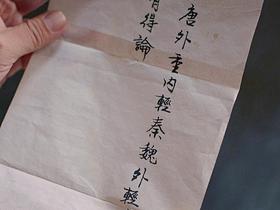 唐外重内輕秦魏外輕
得論